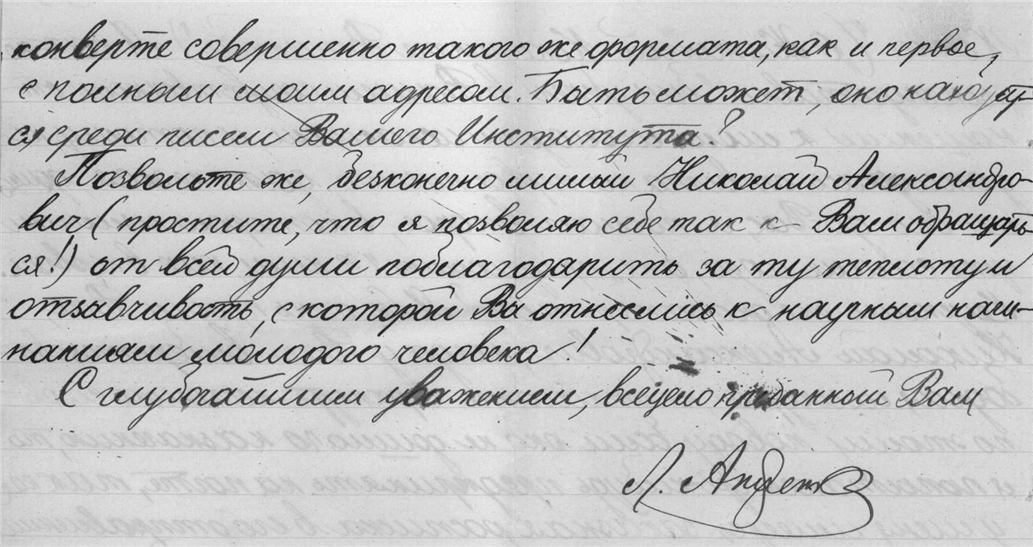 конверте совершенно такого же формата, как и первое,
с полным моим адресом. Быть может, оно находит-
ся среди писем Вашего Института?
Позвольте же, безконечно милый Николай Александро-
вич (простите, что я позволяю себе так к Вам обращать-
ся!) от всей души поблагодарить за ту теплоту и
отзывчивость, с которой Вы отнеслись к научным начи-
наниям молодого человека!
С глубочайшим уважением, всецело преданный Вам
Л.